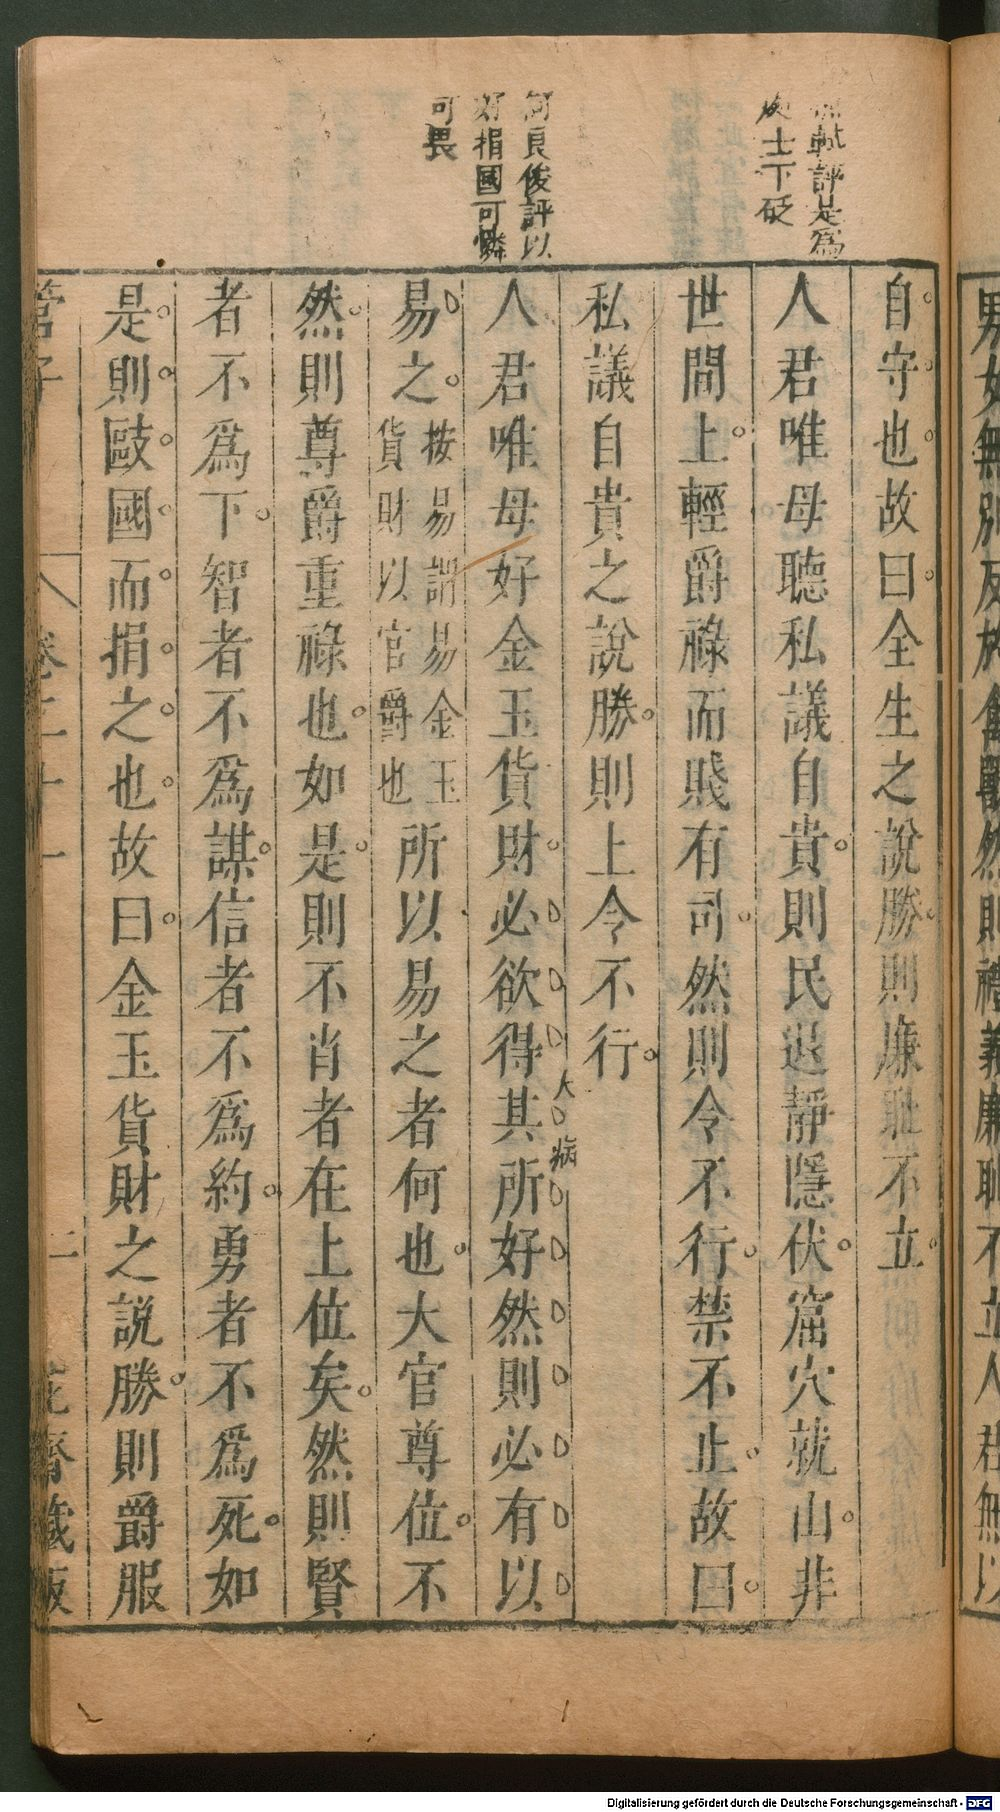 男女無別反於禽獸然則禮義廉恥不立人君無以
自守也故曰全生之說勝則廉恥不立
軾評是為
處士下砭
人君唯毋聽私議自貴則民退靜隱伏窟穴就山非
世間上輕爵祿而賤有司然則令不行禁不止故曰
私議自貴之說勝則上令不行
何良俊評以
好捐國可憐
可畏
人君唯毋好金玉貨財必欲得其所好然則必有以
大病
易之按易謂易金玉貨財以官爵也所以易之者何也大官尊位不
然則尊爵重祿也如是則不肖者在上位矣然則賢
者不爲下智者不爲謀信者不爲約勇者不爲死如
是則敺國而捐之也故曰金玉貨財之説勝則爵服
管子 卷二十一 二 花齋藏板
Digitalisierung gefördert durch die Deutsche Forschungsgemeinschaft - DFG